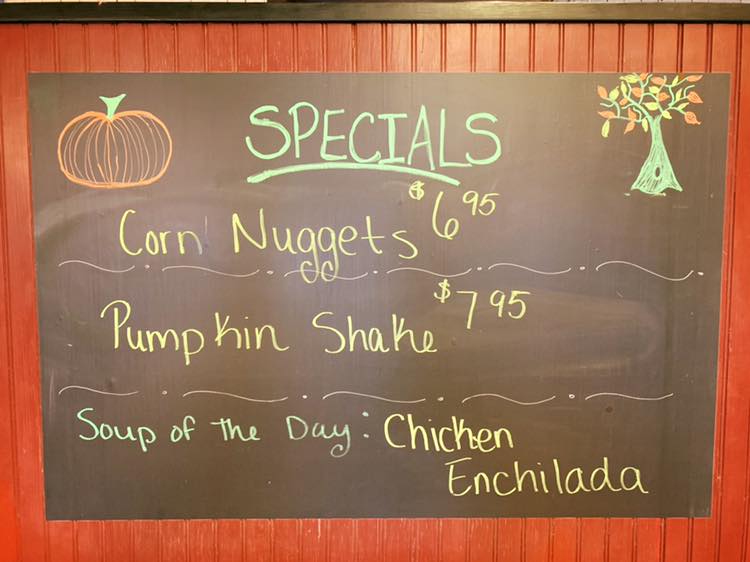 SPECIALS
Corn Nuggets $6.95
Pumpkin Shake $7.95
Soup of the Day: Chicken
Enchilada